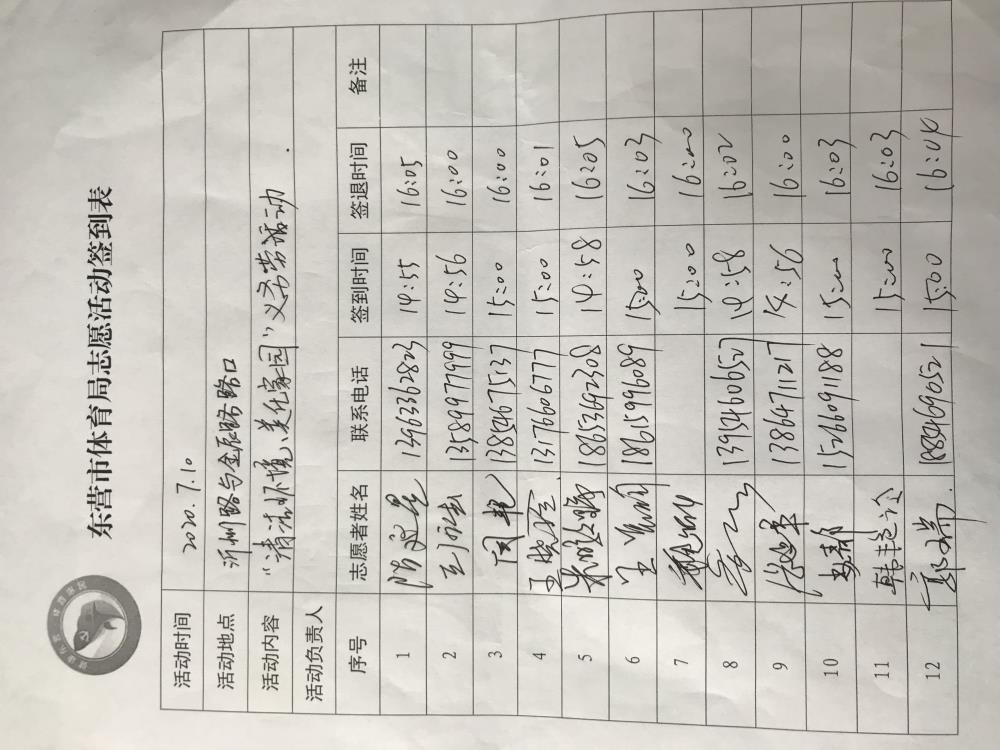 东营市体育局志愿活动签到表
活动时间 2020.7.10
活动地点 沂州路与金辰路路口
活动内容 "清洁环境、美化家园"义务劳动活动.
活动负责人
序号 志愿者姓名 联系电话 签到时间 签退时间 备注
1 13963362823 14:55 16:05
2 13589977999 14:56 16:00
3 周艳 13854675137 15:00 16:00
4 王晓 13176606777 15:00 16:01
5 18653692308 14:58 16:05
6 王 18615996089 15:00 16:03
7 15:00 16:00
8 13954606527 14:58 16:02
9 13864711217 14:56 16:00
10 15266091188 15:00 16:03
11 韩艳 15:00 16:03
12 郭瑞 18854690521 15:00 16:04